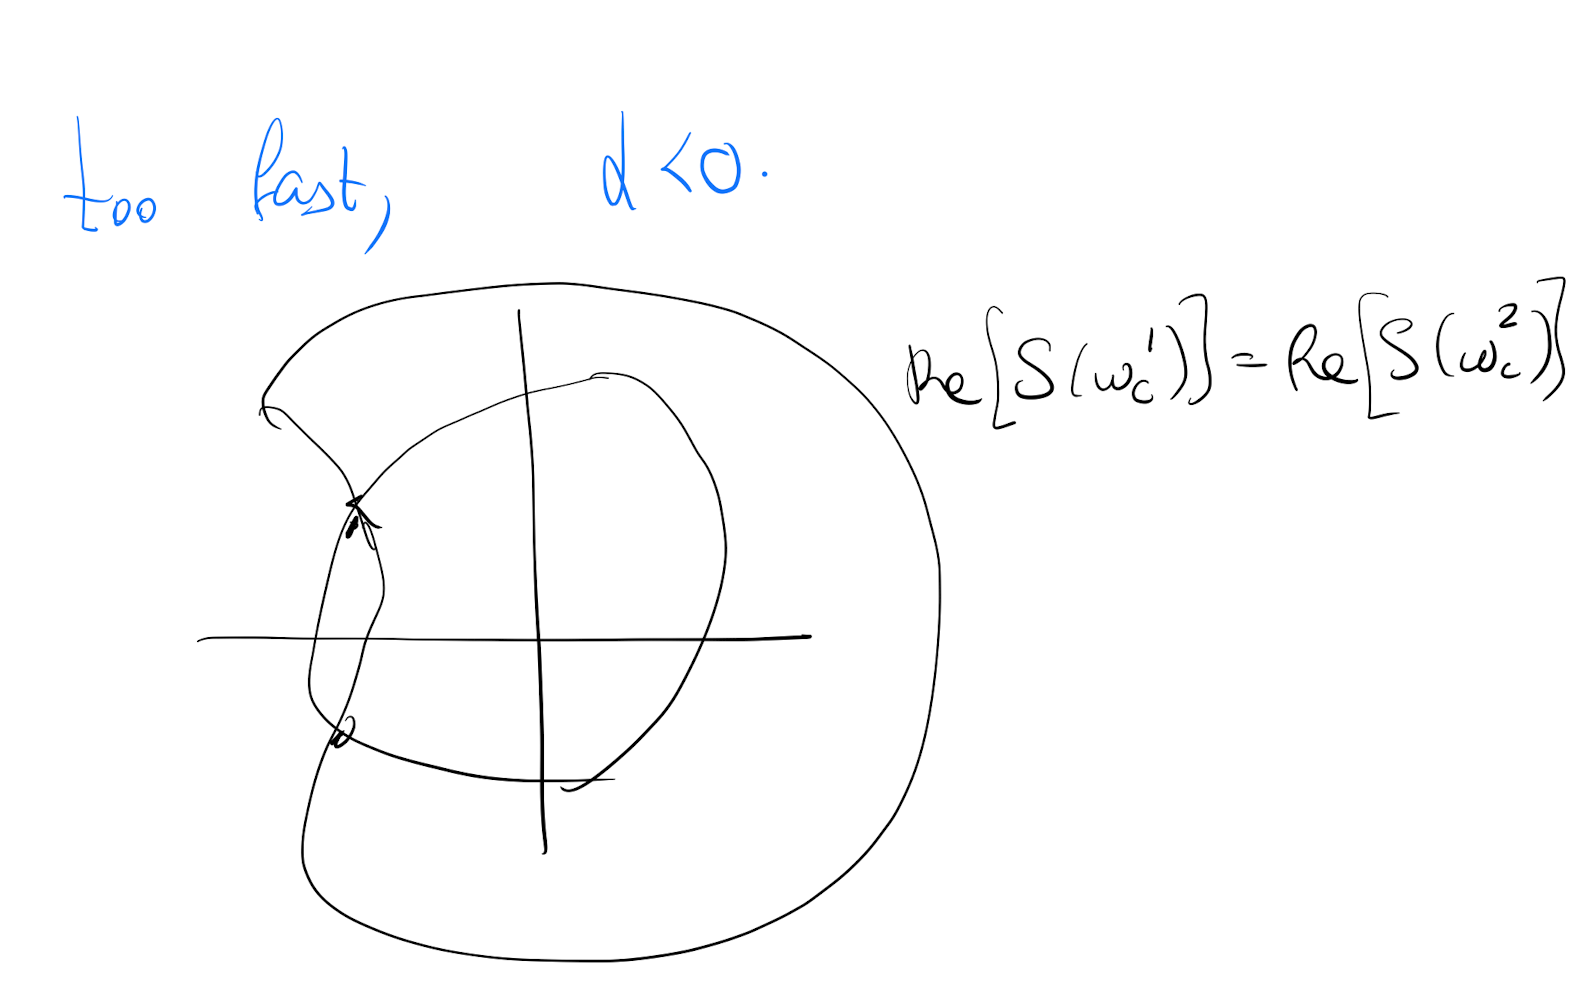 too fast, d<0.
Re[S(ω_c^1)] = Re[S(ω_c^2)]